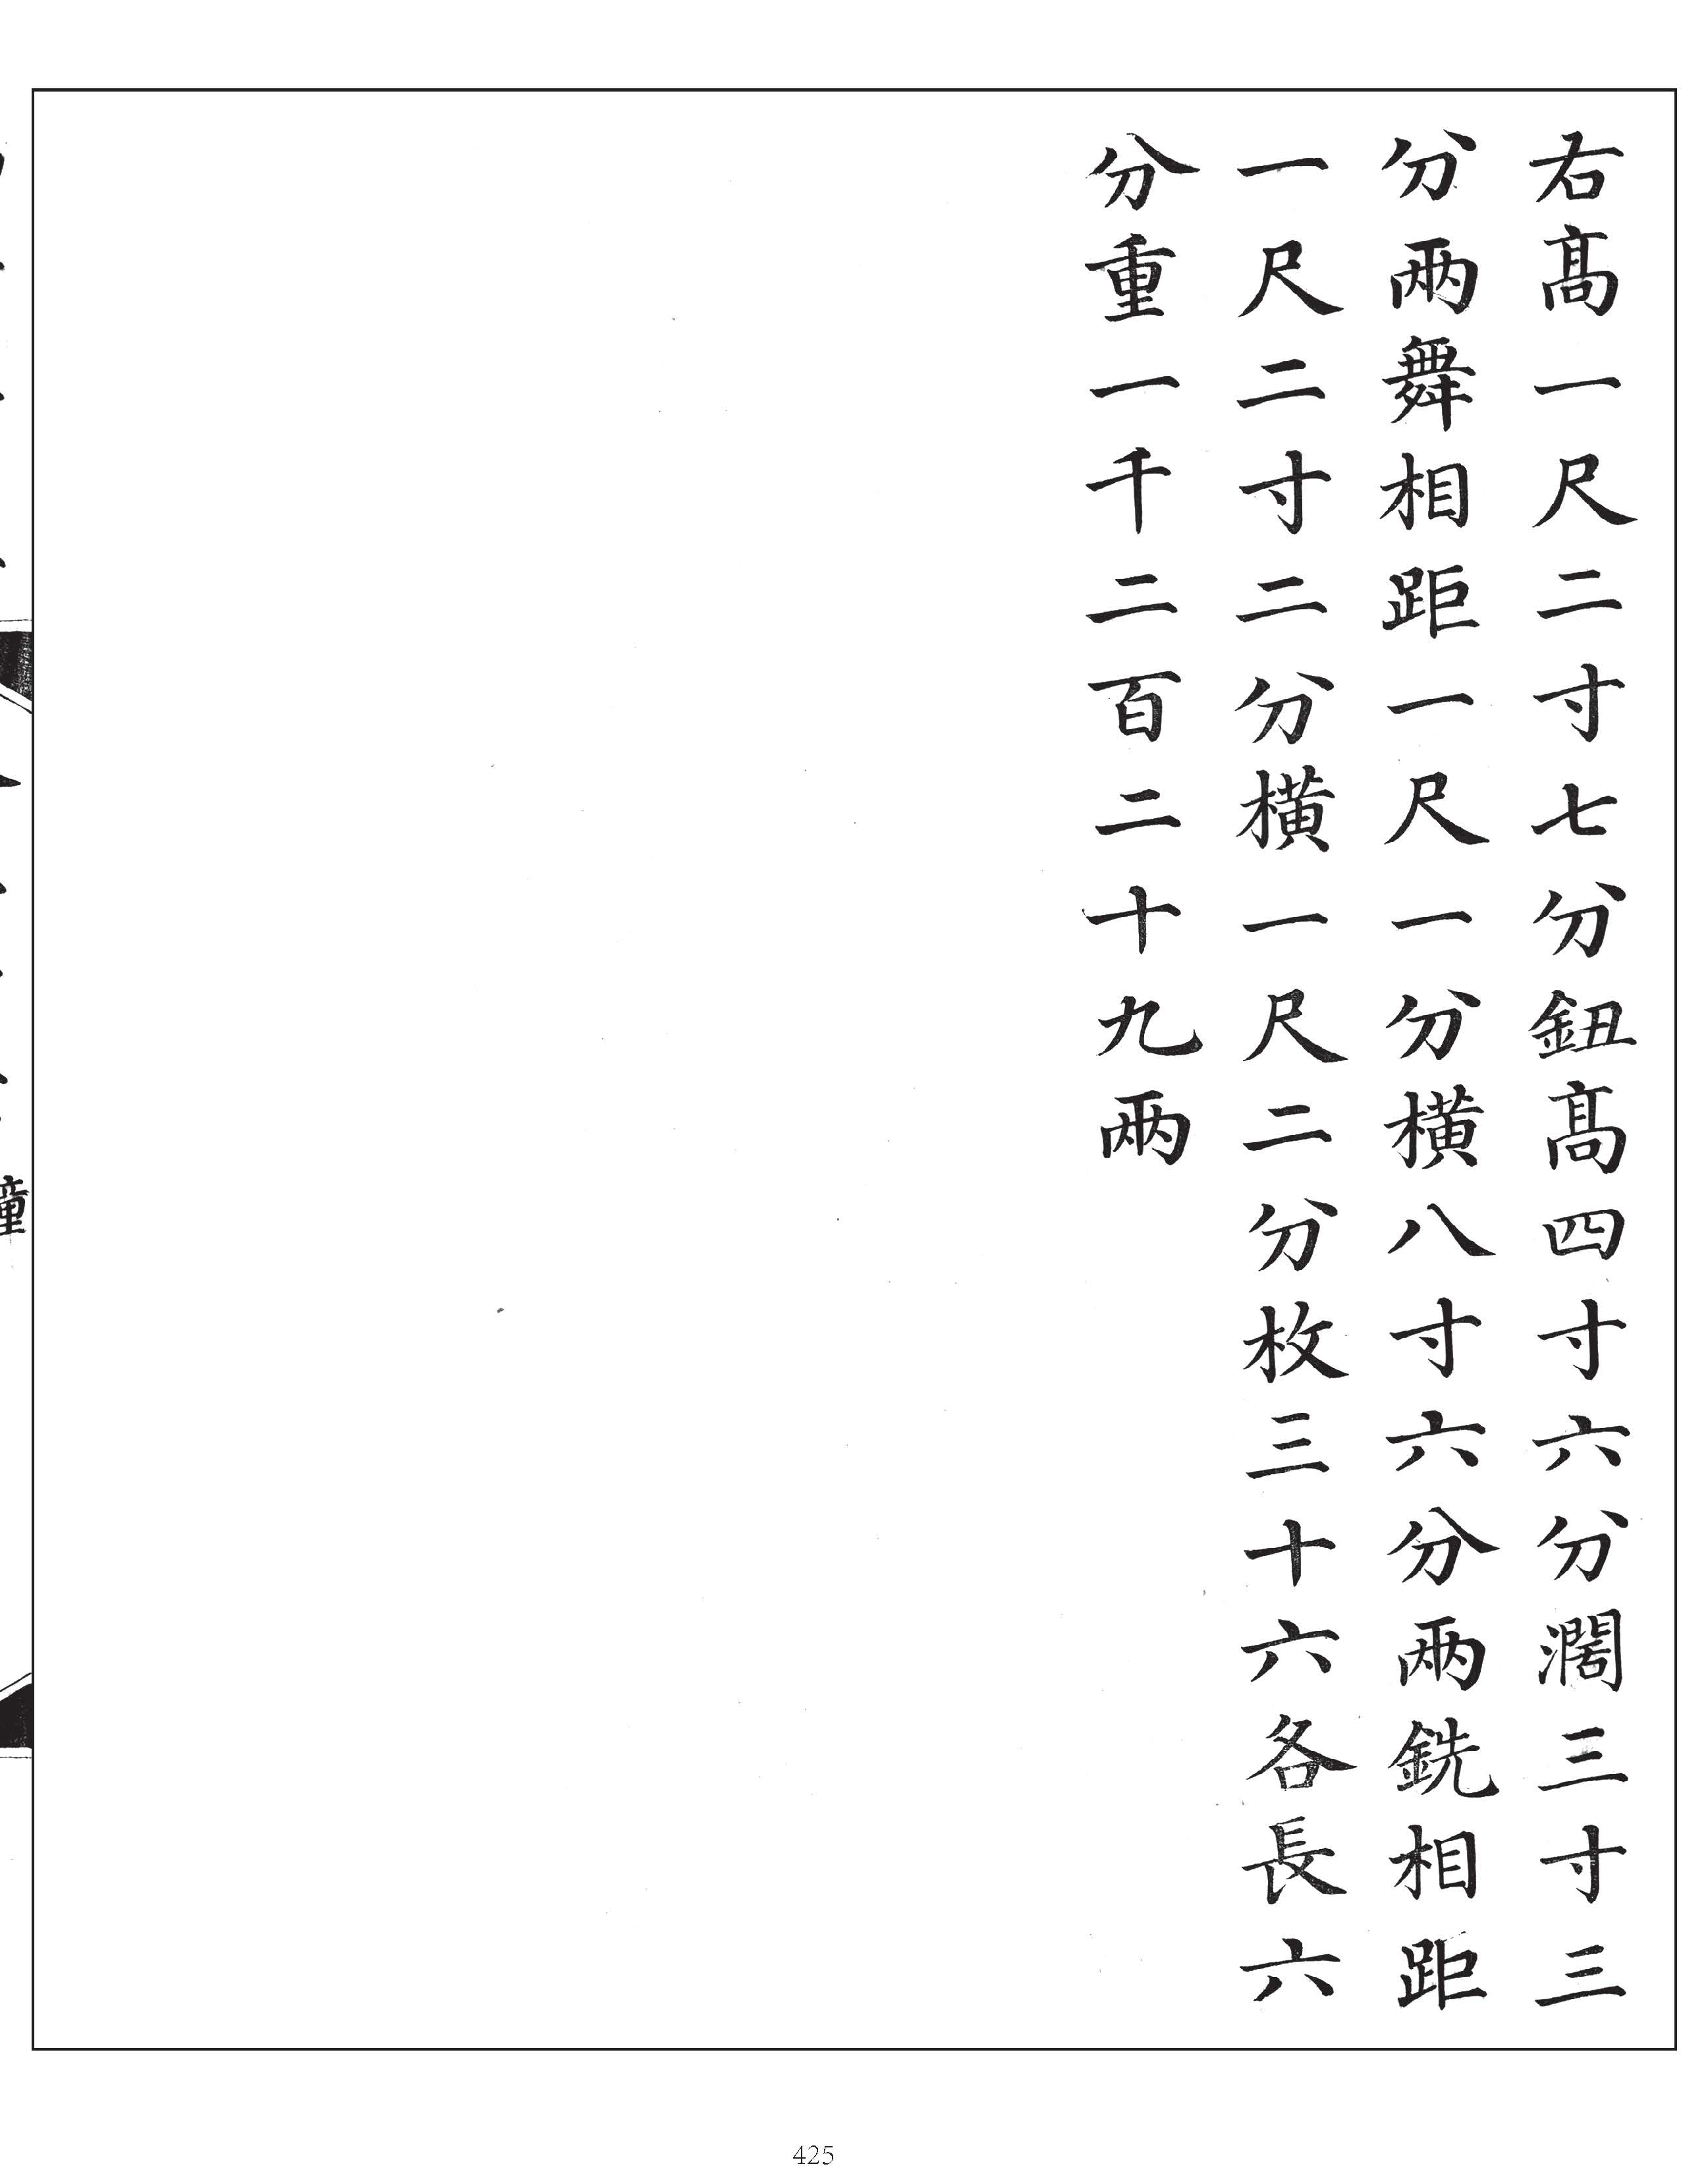 右髙一尺二寸七分鈕髙四寸六分濶三寸三
分兩舞相距一尺一分橫八寸六分兩銑相距
一尺二寸二分橫一尺二分枚三十六各長六
分重一千二百二十九兩
鐘
425